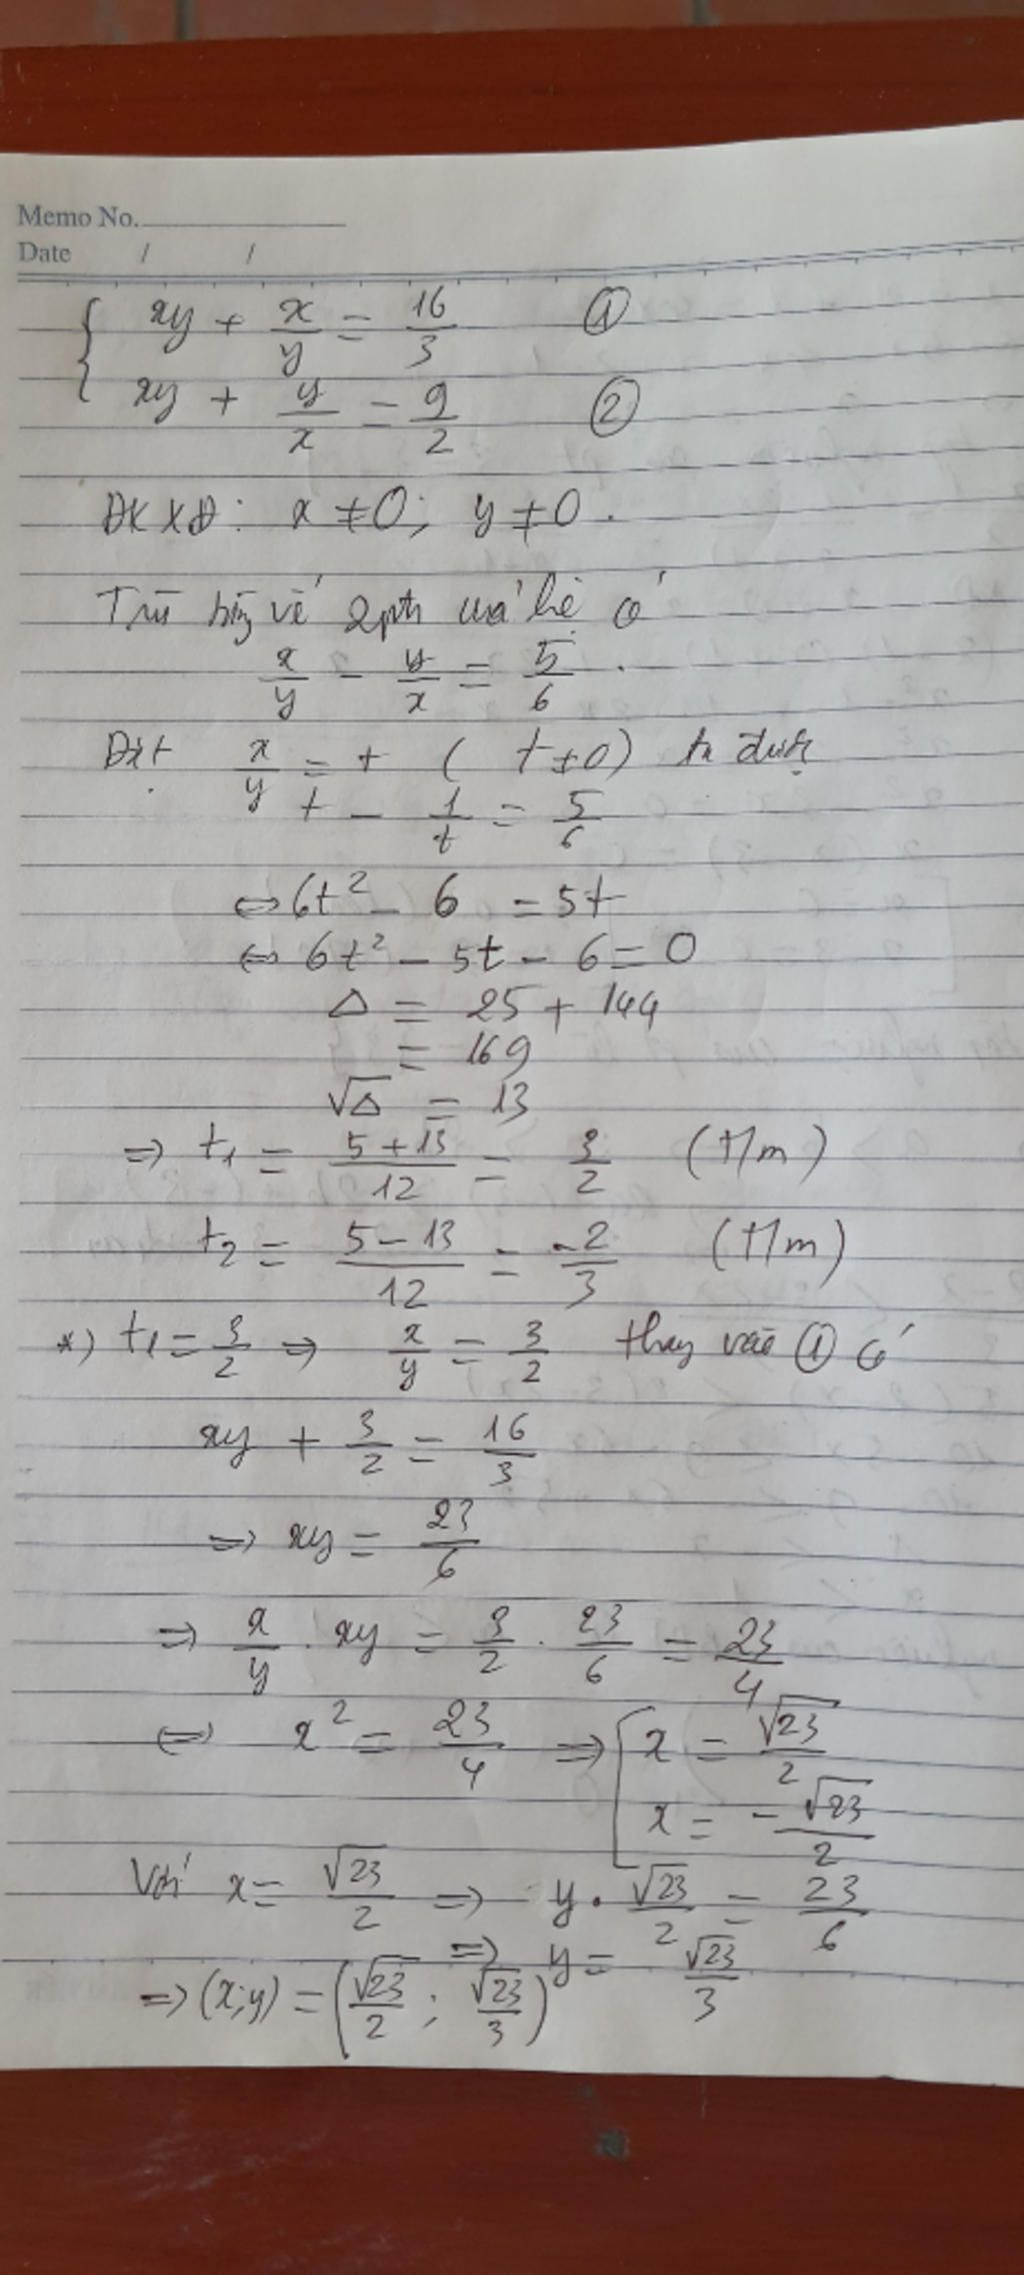 Memo No.
Date / /
{ xy + x/y = 16/3 ①
xy + y/x = 9/2 ②
ĐKXĐ: x ≠ 0; y ≠ 0.
Trừ từng vế 2 pth của hệ có
x/y - y/x = 5/6.
Đặt x/y = t ( t ≠ 0) ta được
t - 1/t = 5/6
⇔ 6t² - 6 = 5t
⇔ 6t² - 5t - 6 = 0
Δ = 25 + 144
= 169
√Δ = 13
⇒ t₁ = (5 + 13)/12 = 3/2 (T/m)
t₂ = (5 - 13)/12 = -2/3 (T/m)
*) t₁ = 3/2 ⇒ x/y = 3/2 thay vào ① có
xy + 3/2 = 16/3
⇒ xy = 23/6
⇒ x/y . xy = 3/2 . 23/6 = 23/4
⇔ x² = 23/4 ⇒ [ x = √23/2
x = -√23/2
Với x = √23/2 ⇒ y . √23/2 = 23/6
⇒ y = √23/3
⇒ (x;y) = (√23/2 ; √23/3)